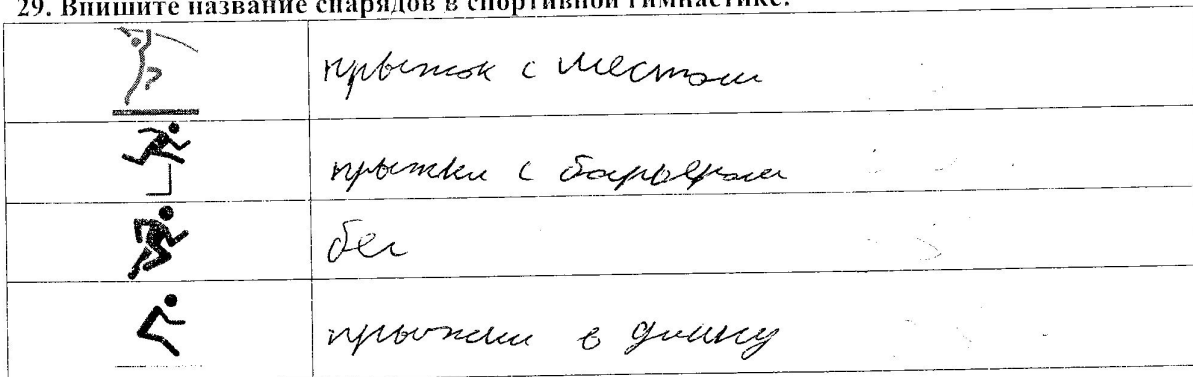 29. Впишите название снарядов в спортивной гимнастике.
прыжок с шестом
прыжки с барьером
бег
прыжки в длину